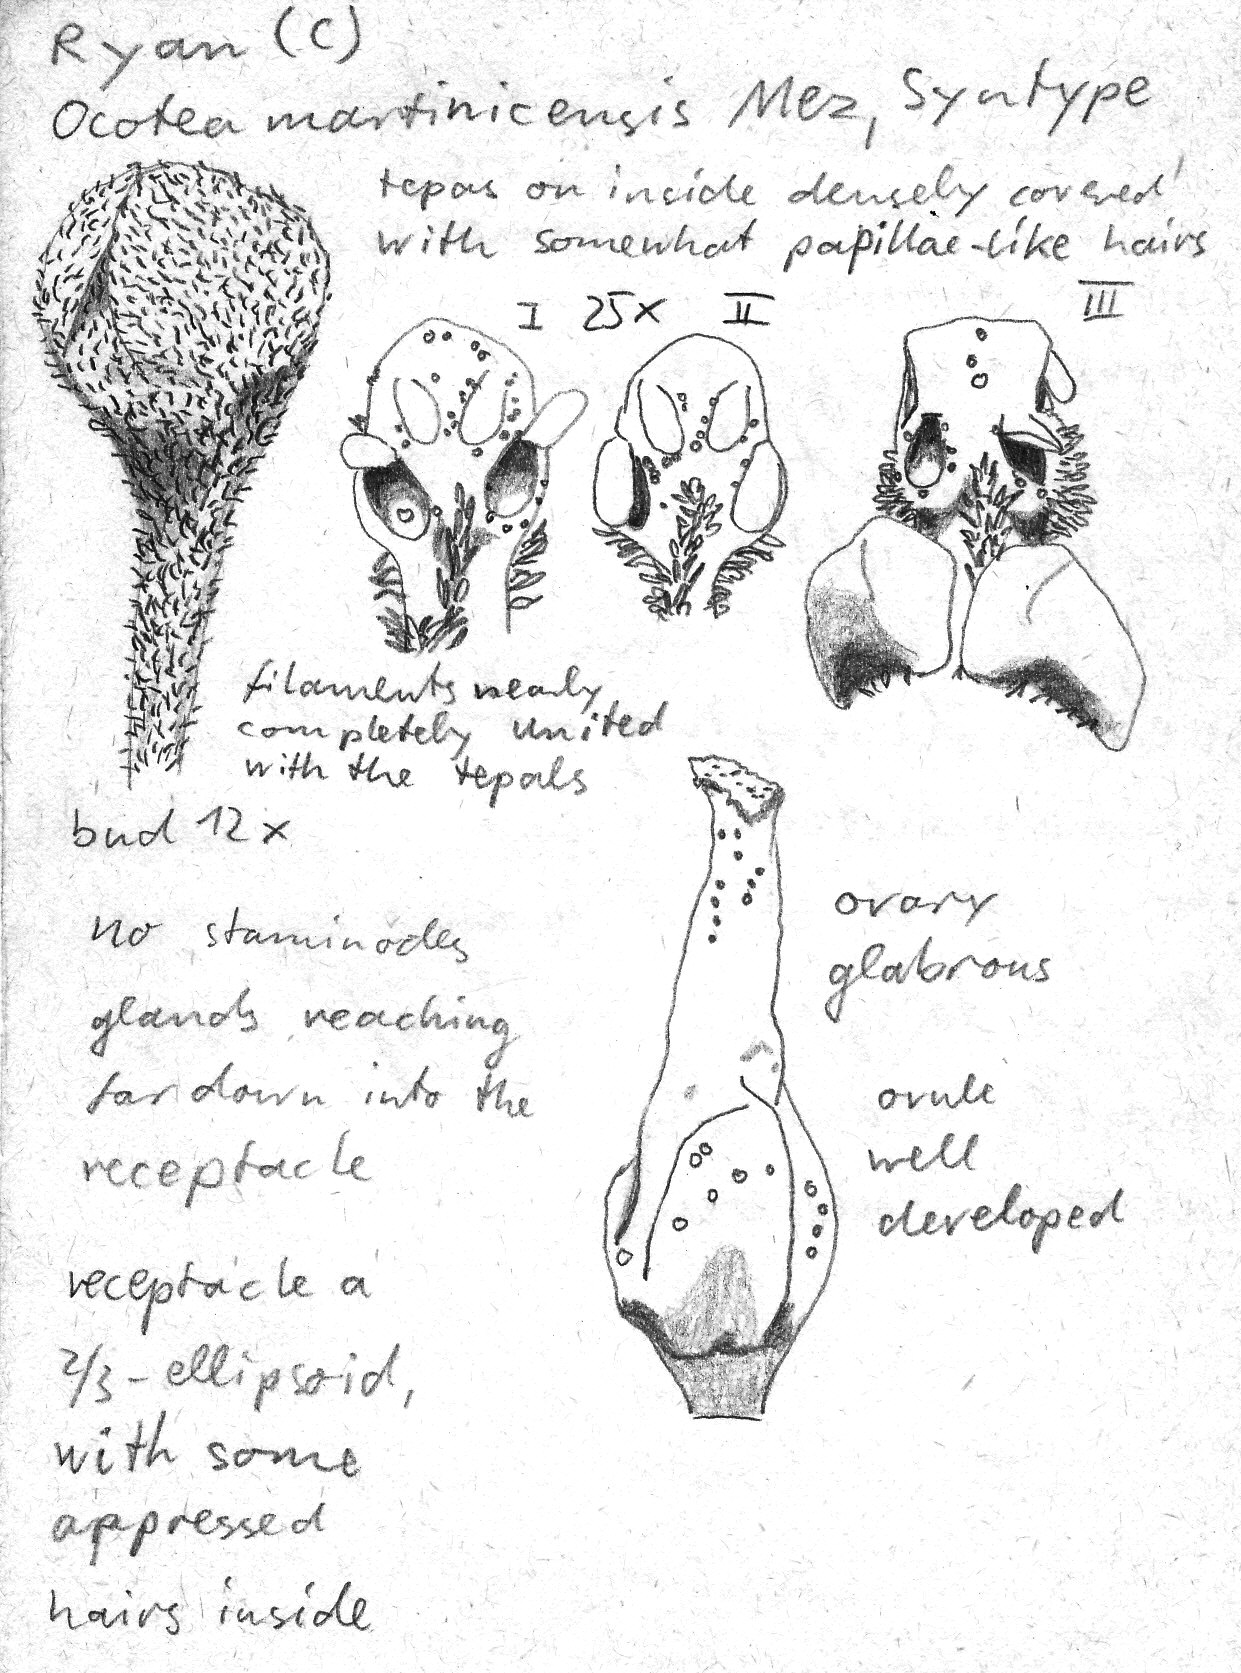 Ryan (C)
Ocotea martinicensis Mez, Syntype
tepas on inside densely covered
with somewhat papillae-like hairs
I 25x II III
filaments nearly
completely united
with the tepals
bud 12x
no staminodes
glands reaching
far down into the
receptacle
ovary
glabrous
ovule
well
developed
receptacle a
2/3-ellipsoid,
with some
appressed
hairs inside